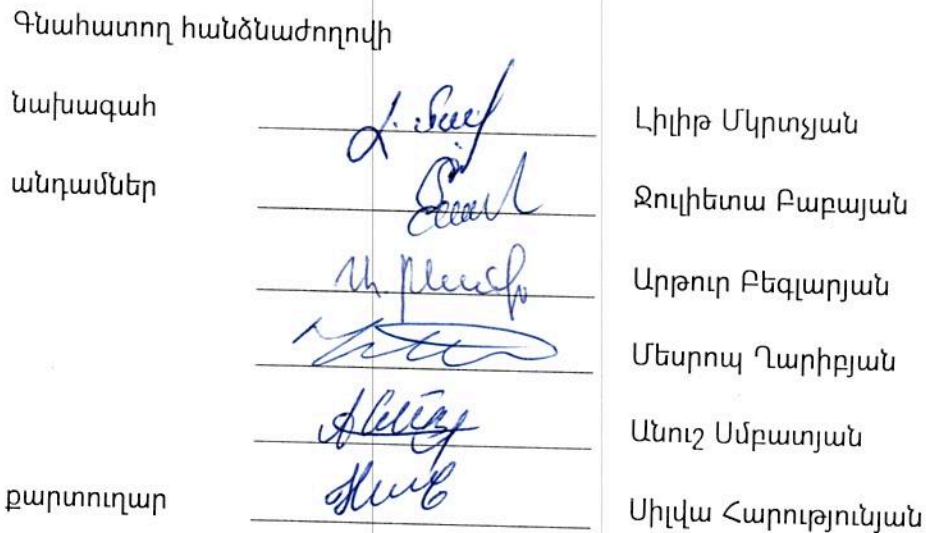 Գնահատող հանձնաժողովի
նախագահ Լիլիթ Մկրտչյան
անդամներ Ջուլիետա Բաբայան
Արթուր Բեգլարյան
Մեսրոպ Ղարիբյան
Անուշ Սմբատյան
քարտուղար Սիլվա Հարությունյան